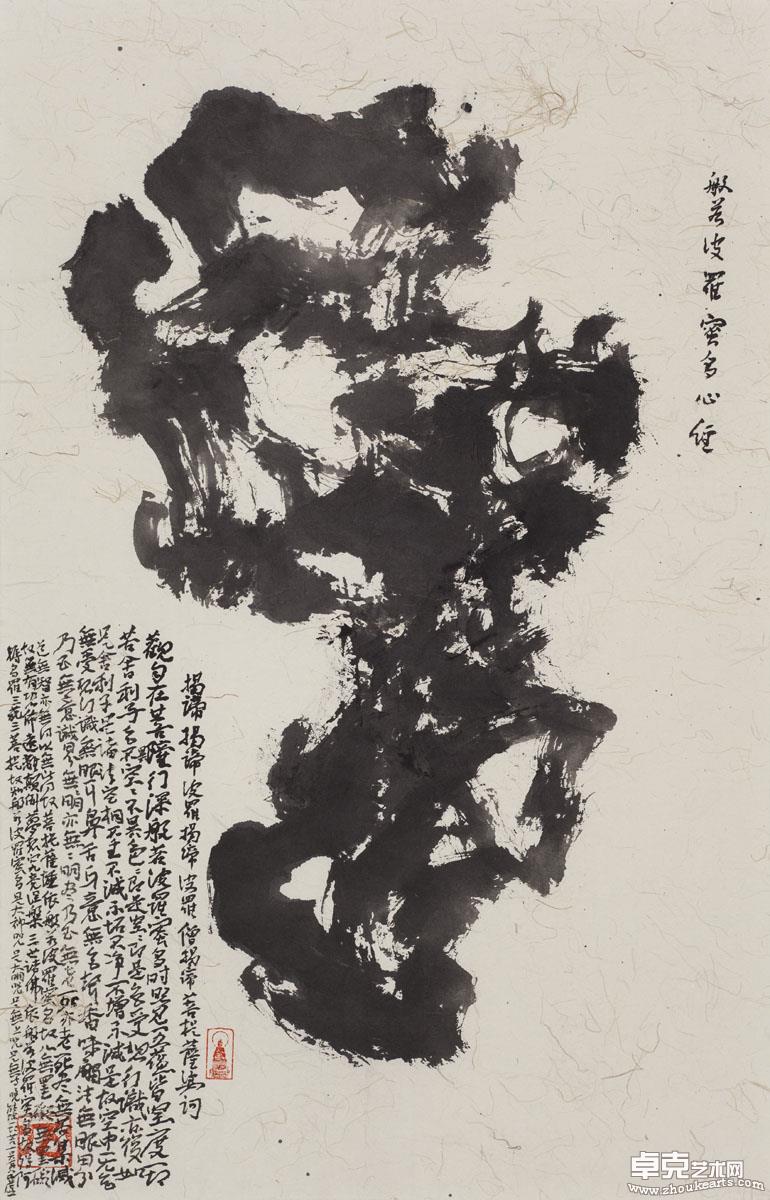 般若波羅蜜多心經
揭諦揭諦波羅揭諦波羅僧揭諦菩提薩婆訶
觀自在菩薩行深般若波羅蜜多時照見五蘊皆空度一切
苦舍利子色不異空々不異色々即是空々即是色受想行識亦復如
是舍利子是諸法空相不生不滅不垢不淨不增不減是故空中无色
無受想行識無眼耳鼻舌身意無色聲香味觸法無眼界
乃至無意識界無無明亦無々明盡乃至無老死亦無老死盡無苦集滅
道無智亦無得以無所得故菩提薩埵依般若波羅蜜多故心無罣礙無罣礙
故無有恐怖遠離顛倒夢想究竟涅槃三世諸佛依般若波羅蜜多故得阿
耨多羅三藐三菩提故知般若波羅蜜多是大神咒是大明咒是無上咒是無等等咒
卓克艺术网
www.zhoukearts.com